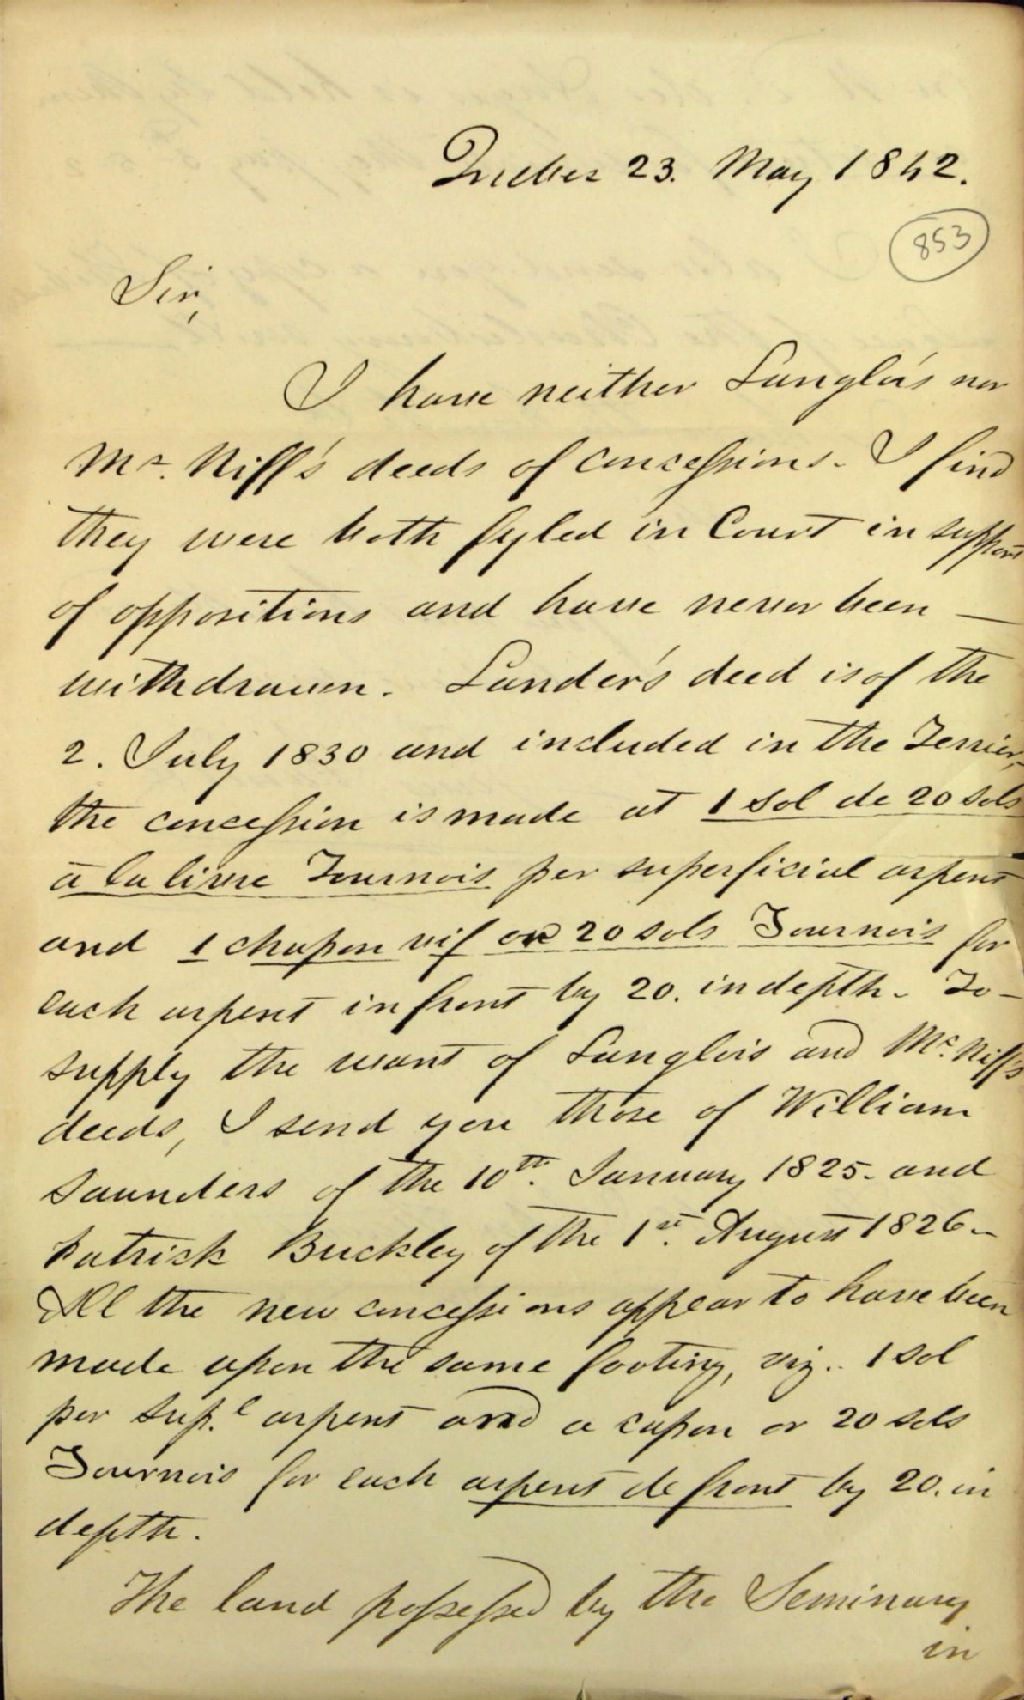 Quebec 23. May 1842.
853
Sir,
I have neither Langlois nor
Mc. Niff's deeds of concessions. I find
they were both fyled in Court in support
of oppositions and have never been —
withdrawn. Lander's deed is of the
2. July 1830 and included in the Terrier,
the concession is made at 1 sol de 20 sols
à la livre Tournois per superficial arpent
and 1 chapon vif or 20 sols Tournois for
each arpent in front by 20. in depth. To —
supply the want of Langlois and Mc. Niff's
deeds, I send you those of William
Saunders of the 10th. January 1825. and
Patrick Buckley of the 1st. August 1826 —
All the new concessions appear to have been
made upon the same footing, viz.. 1 sol
per sup.l arpent and a capon or 20 sols
Tournois for each arpent de front by 20. in
depth.
The land possessed by the Seminary
in